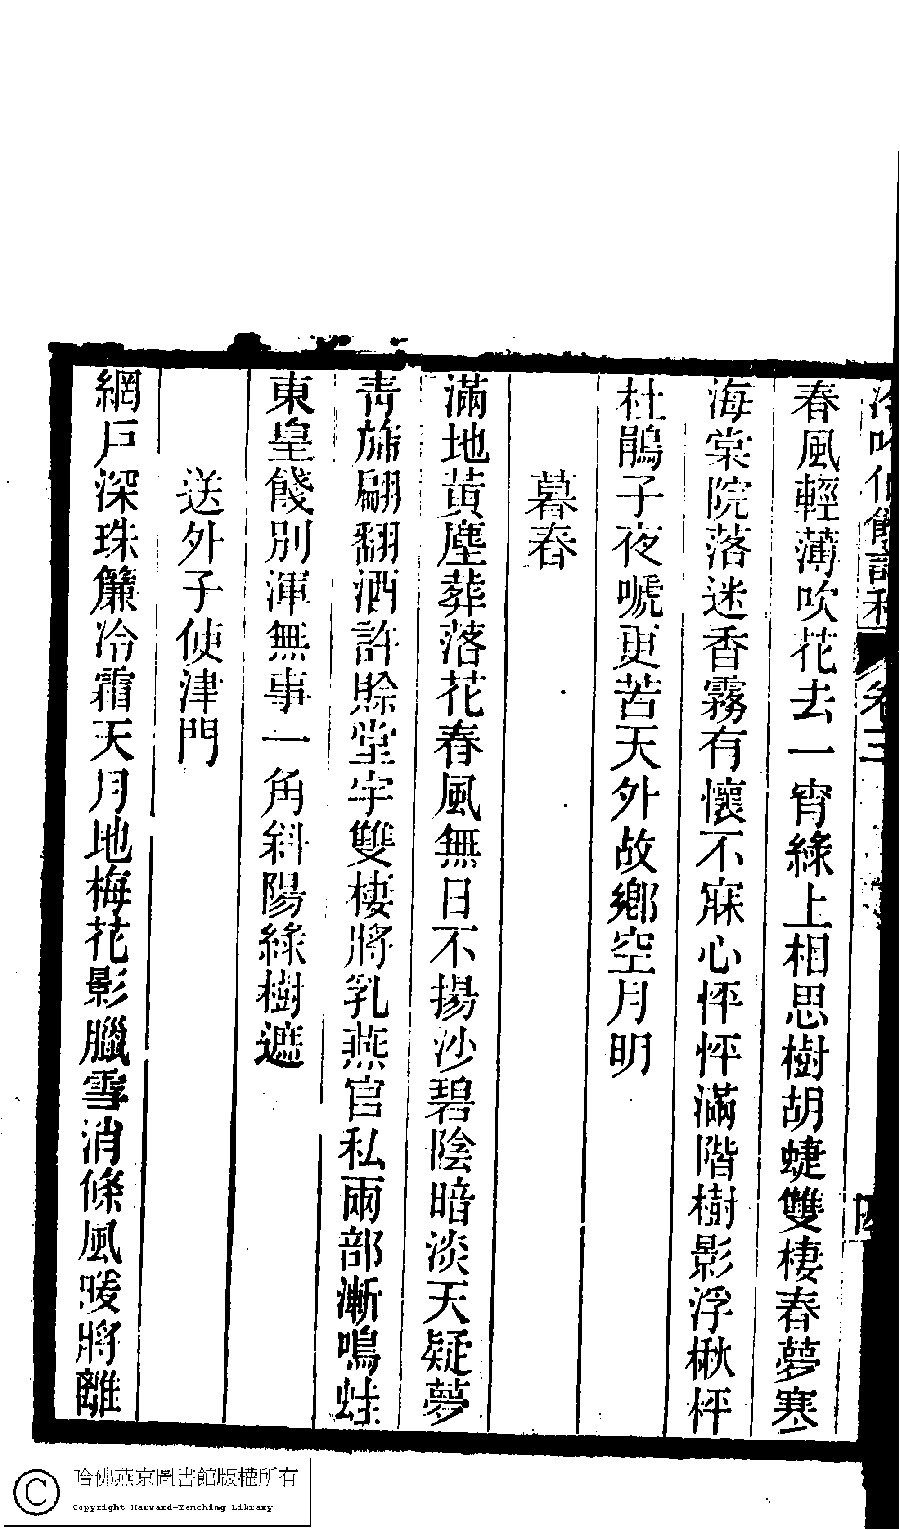 卷三
春風輕薄吹花去一宵綠上相思樹胡蜨雙棲春夢寒
海棠院落迷香霧有懷不寐心怦怦滿階樹影浮楸枰
杜鵑子夜嗁更苦天外故鄉空月明
暮春
滿地黃塵葬落花春風無日不揚沙碧陰暗淡天疑夢
靑旆翩翻酒許賒堂宇雙棲將乳燕官私兩部漸鳴蛙
東皇餞別渾無事一角斜陽綠樹遮
送外子使津門
網戶深珠簾冷霜天月地梅花影臘雪消條風暖將離
哈佛燕京圖書館版權所有
Copyright Harvard-Yenching Library